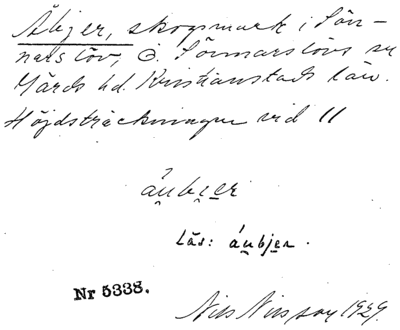 Åbjer, skogsmark i Sön-
narslöv, ö. Sönnarslövs sn
Gärds hd. Kristianstads län.
Höjdsträckningen vid 11
áu̯bi̯er
Läs: áu̯bjer.
Nr 5338.
Nils Nilsson 1929.